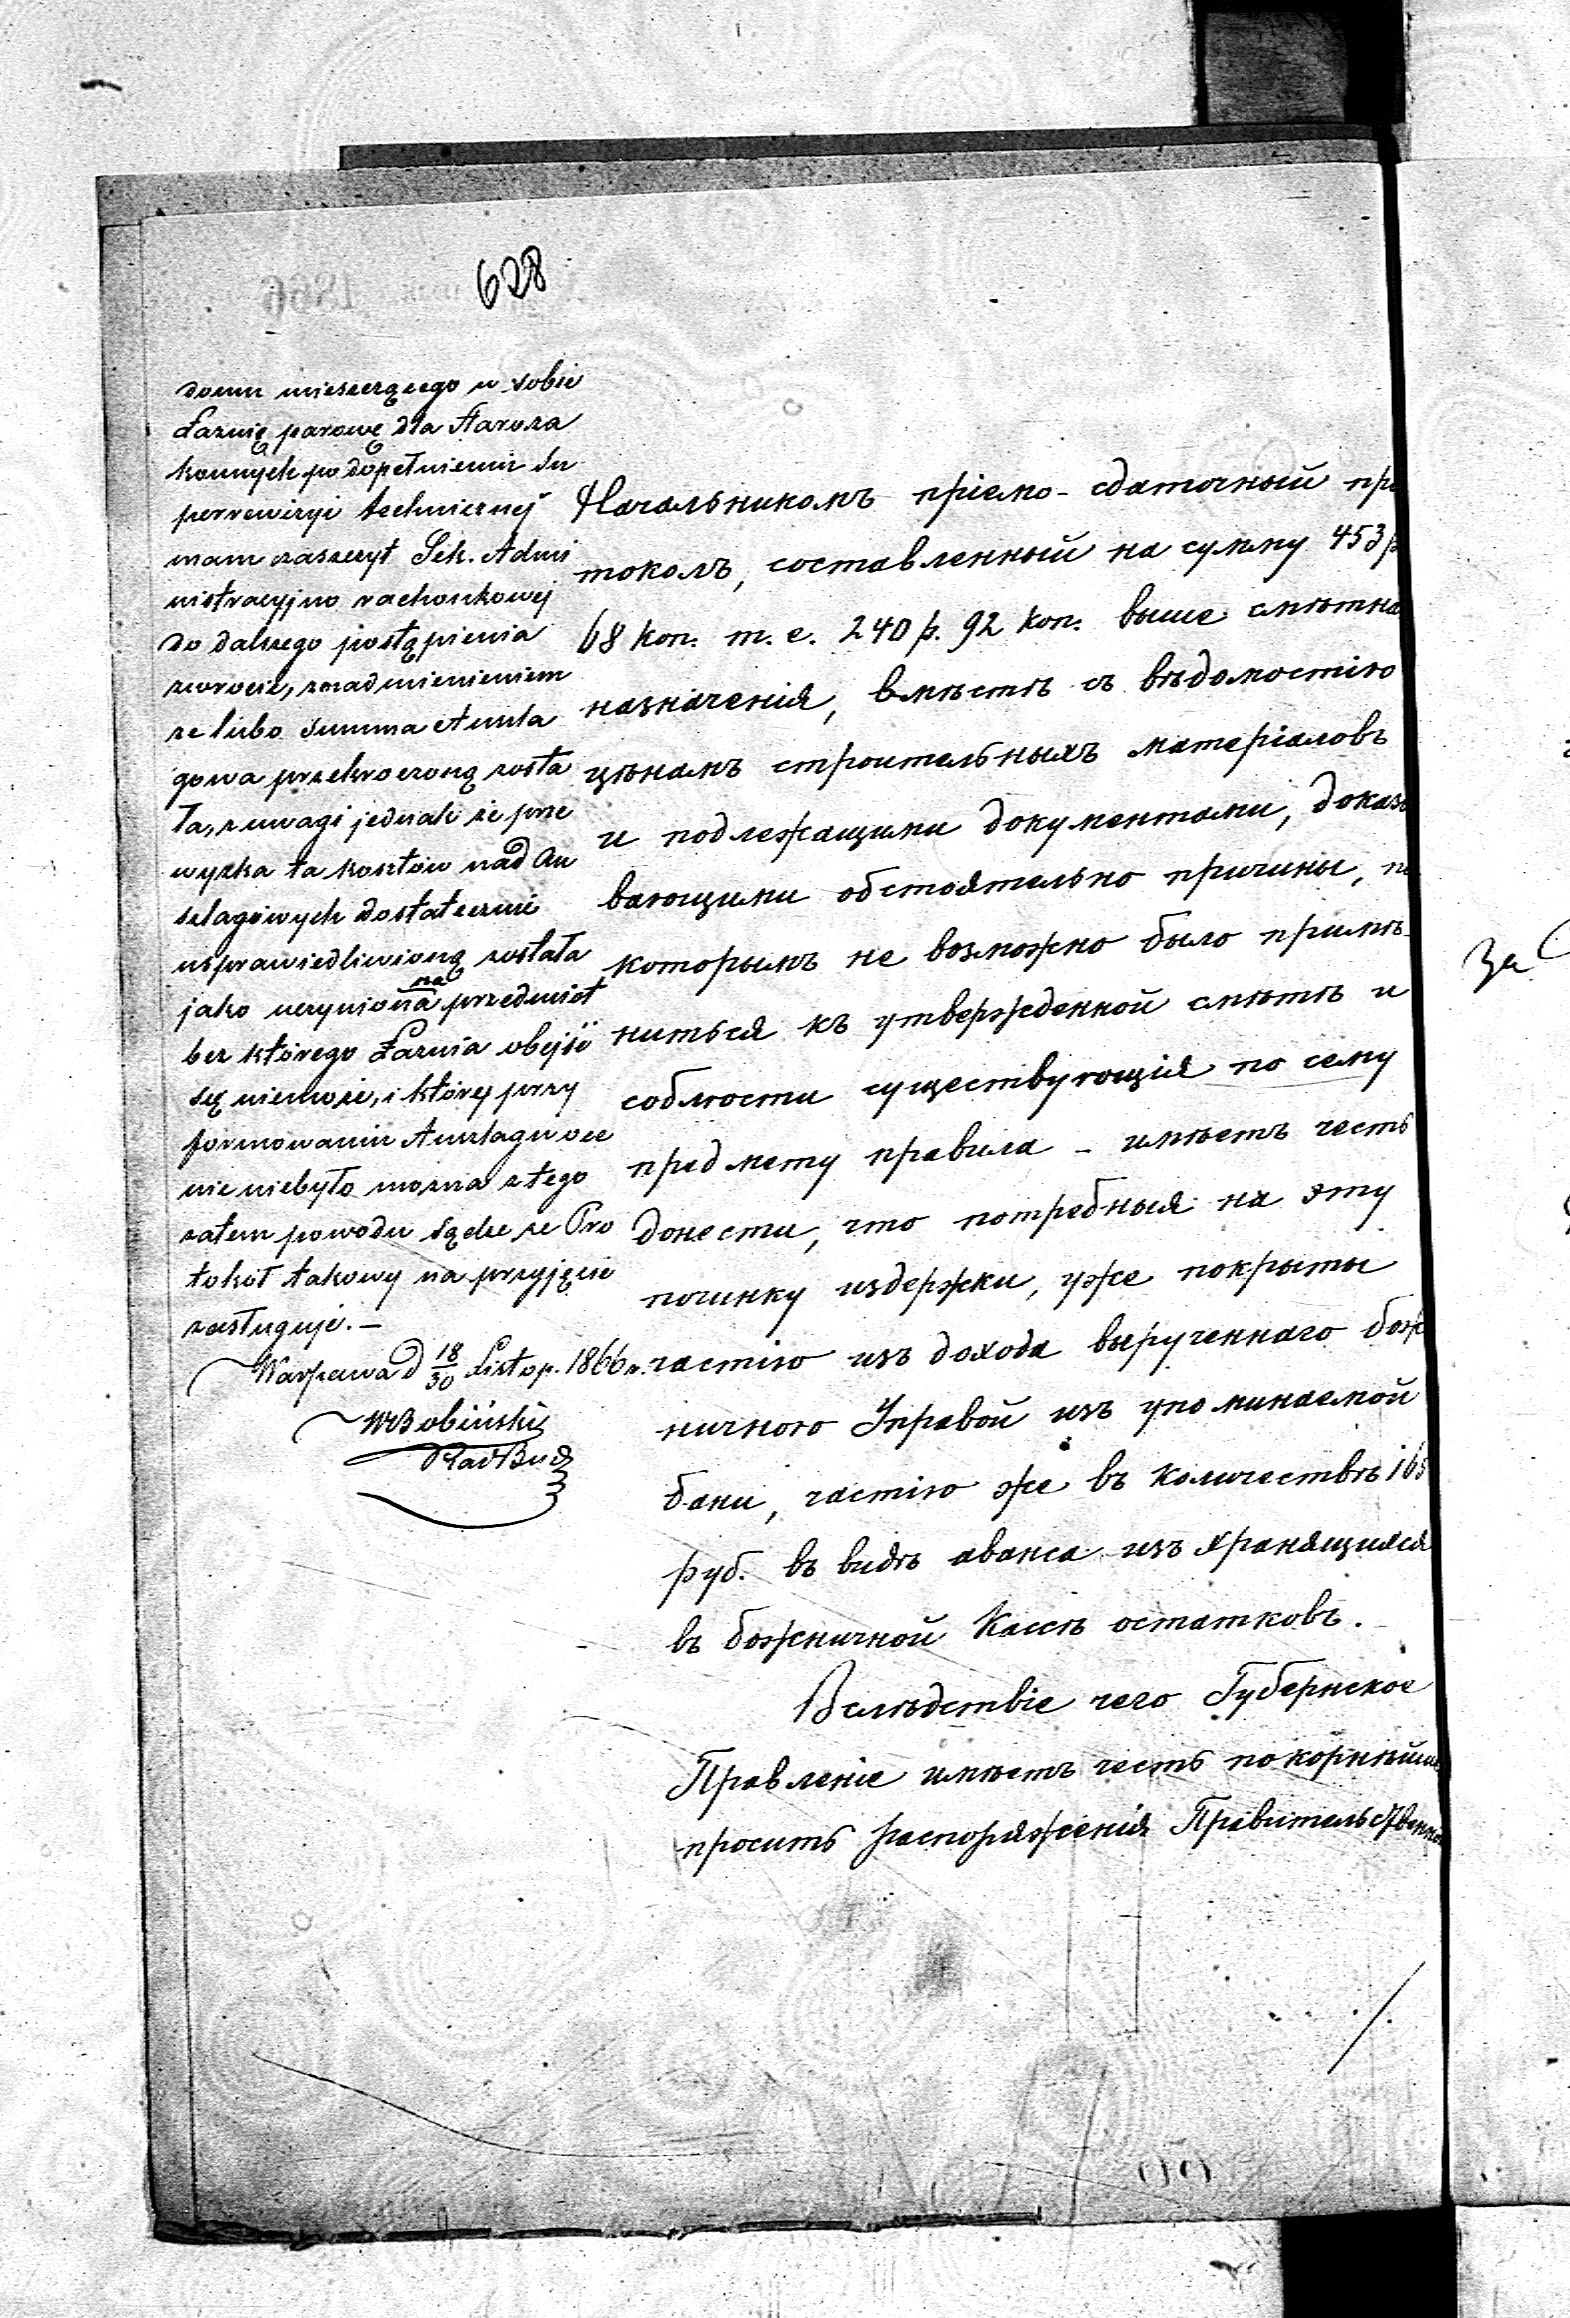 628
domu mieszczącego w sobie
Łaźnię parową dla Staroza
konnych po dopełnieniu Su
perrewizyi technicznej
mam zaszczyt Sek. Admi
nistracyjno rachonkowej
do dalszego postąpienia
zwrócić, z nadmienieniem
że lubo Summa Anszla
gowa przekroczoną zosta
ła, z uwagi jednak że prze
wyżka ta kosztów nad An
szlagowych dostatecznie
usprawiedliwioną została
jako uczyniona na przedmiot
bez którego Łaźnia obejść
się niemoże, i który przy
formowaniu Anszlagu oce
nić niebyło można z tego
zatem powodu sądzę że Pro
tokół takowy na przyjęcie
zasługuje. —
Warszawa d 18/30 Listop. 1866 r.
W Bobiński
Rad Bud
Начальникомъ пріемо-сдаточный про
токолъ, составленный на сумму 453 р
68 коп. т. е. 240 р. 92 коп. выше смѣтна
назначенія, вмѣстѣ съ вѣдомостію
цѣнамъ строительныхъ матеріаловъ
и подлежащими документами, доказы
вающими обстоятельно причины, по
которымъ не возможно было примѣ-
ниться къ утвержденной смѣтѣ и
соблюсти существующія по сему
предмету правила – имѣетъ честь
донести, что потребныя на эту
починку издержки, уже покрыты
частію изъ дохода вырученнаго бож
ничного Управой изъ упоминаемой
бани, частію же въ количествѣ 165
руб. въ видѣ аванса изъ хранящихся
въ божничной Кассѣ остатковъ.
Вслѣдствіе чего Губернское
Правленіе имѣетъ честь покорнѣйше
просить распоряженія Правительственно
./.
За